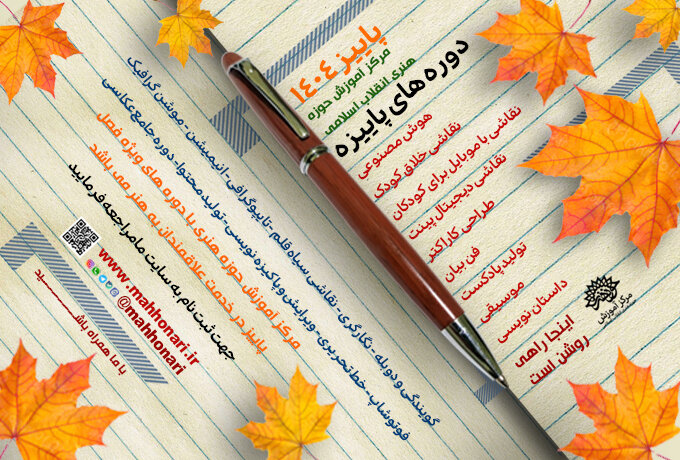 پاییز ۱۴۰۴
مرکز آموزش حوزه
هنری انقلاب اسلامی
دوره های پاییزه
هوش مصنوعی
نقاشی خلاق کودک
نقاشی با موبایل برای کودکان
نقاشی دیجیتال پینت
طراحی کاراکتر
فن بیان
تولید پادکست
موسیقی
داستان نویسی
اینجا راهی
روشن است
مرکز آموزش
گویندگی و دوبله - نگارگری - نقاشی سیاه قلم - تایپوگرافی - انیمیشن - موشن گرافیک
فوتوشاپ - خط تحریری - ویرایش و پاکیزه نویسی - تولید محتوا - دوره جامع عکاسی
مرکز آموزش حوزه هنری با دوره های ویژه فصل
پاییز در خدمت علاقمندان به هنر می باشد
جهت ثبت نام به سایت ما مراجعه فرمایید
www.mahhonari.ir
@mahhonari
با ما همراه باشید